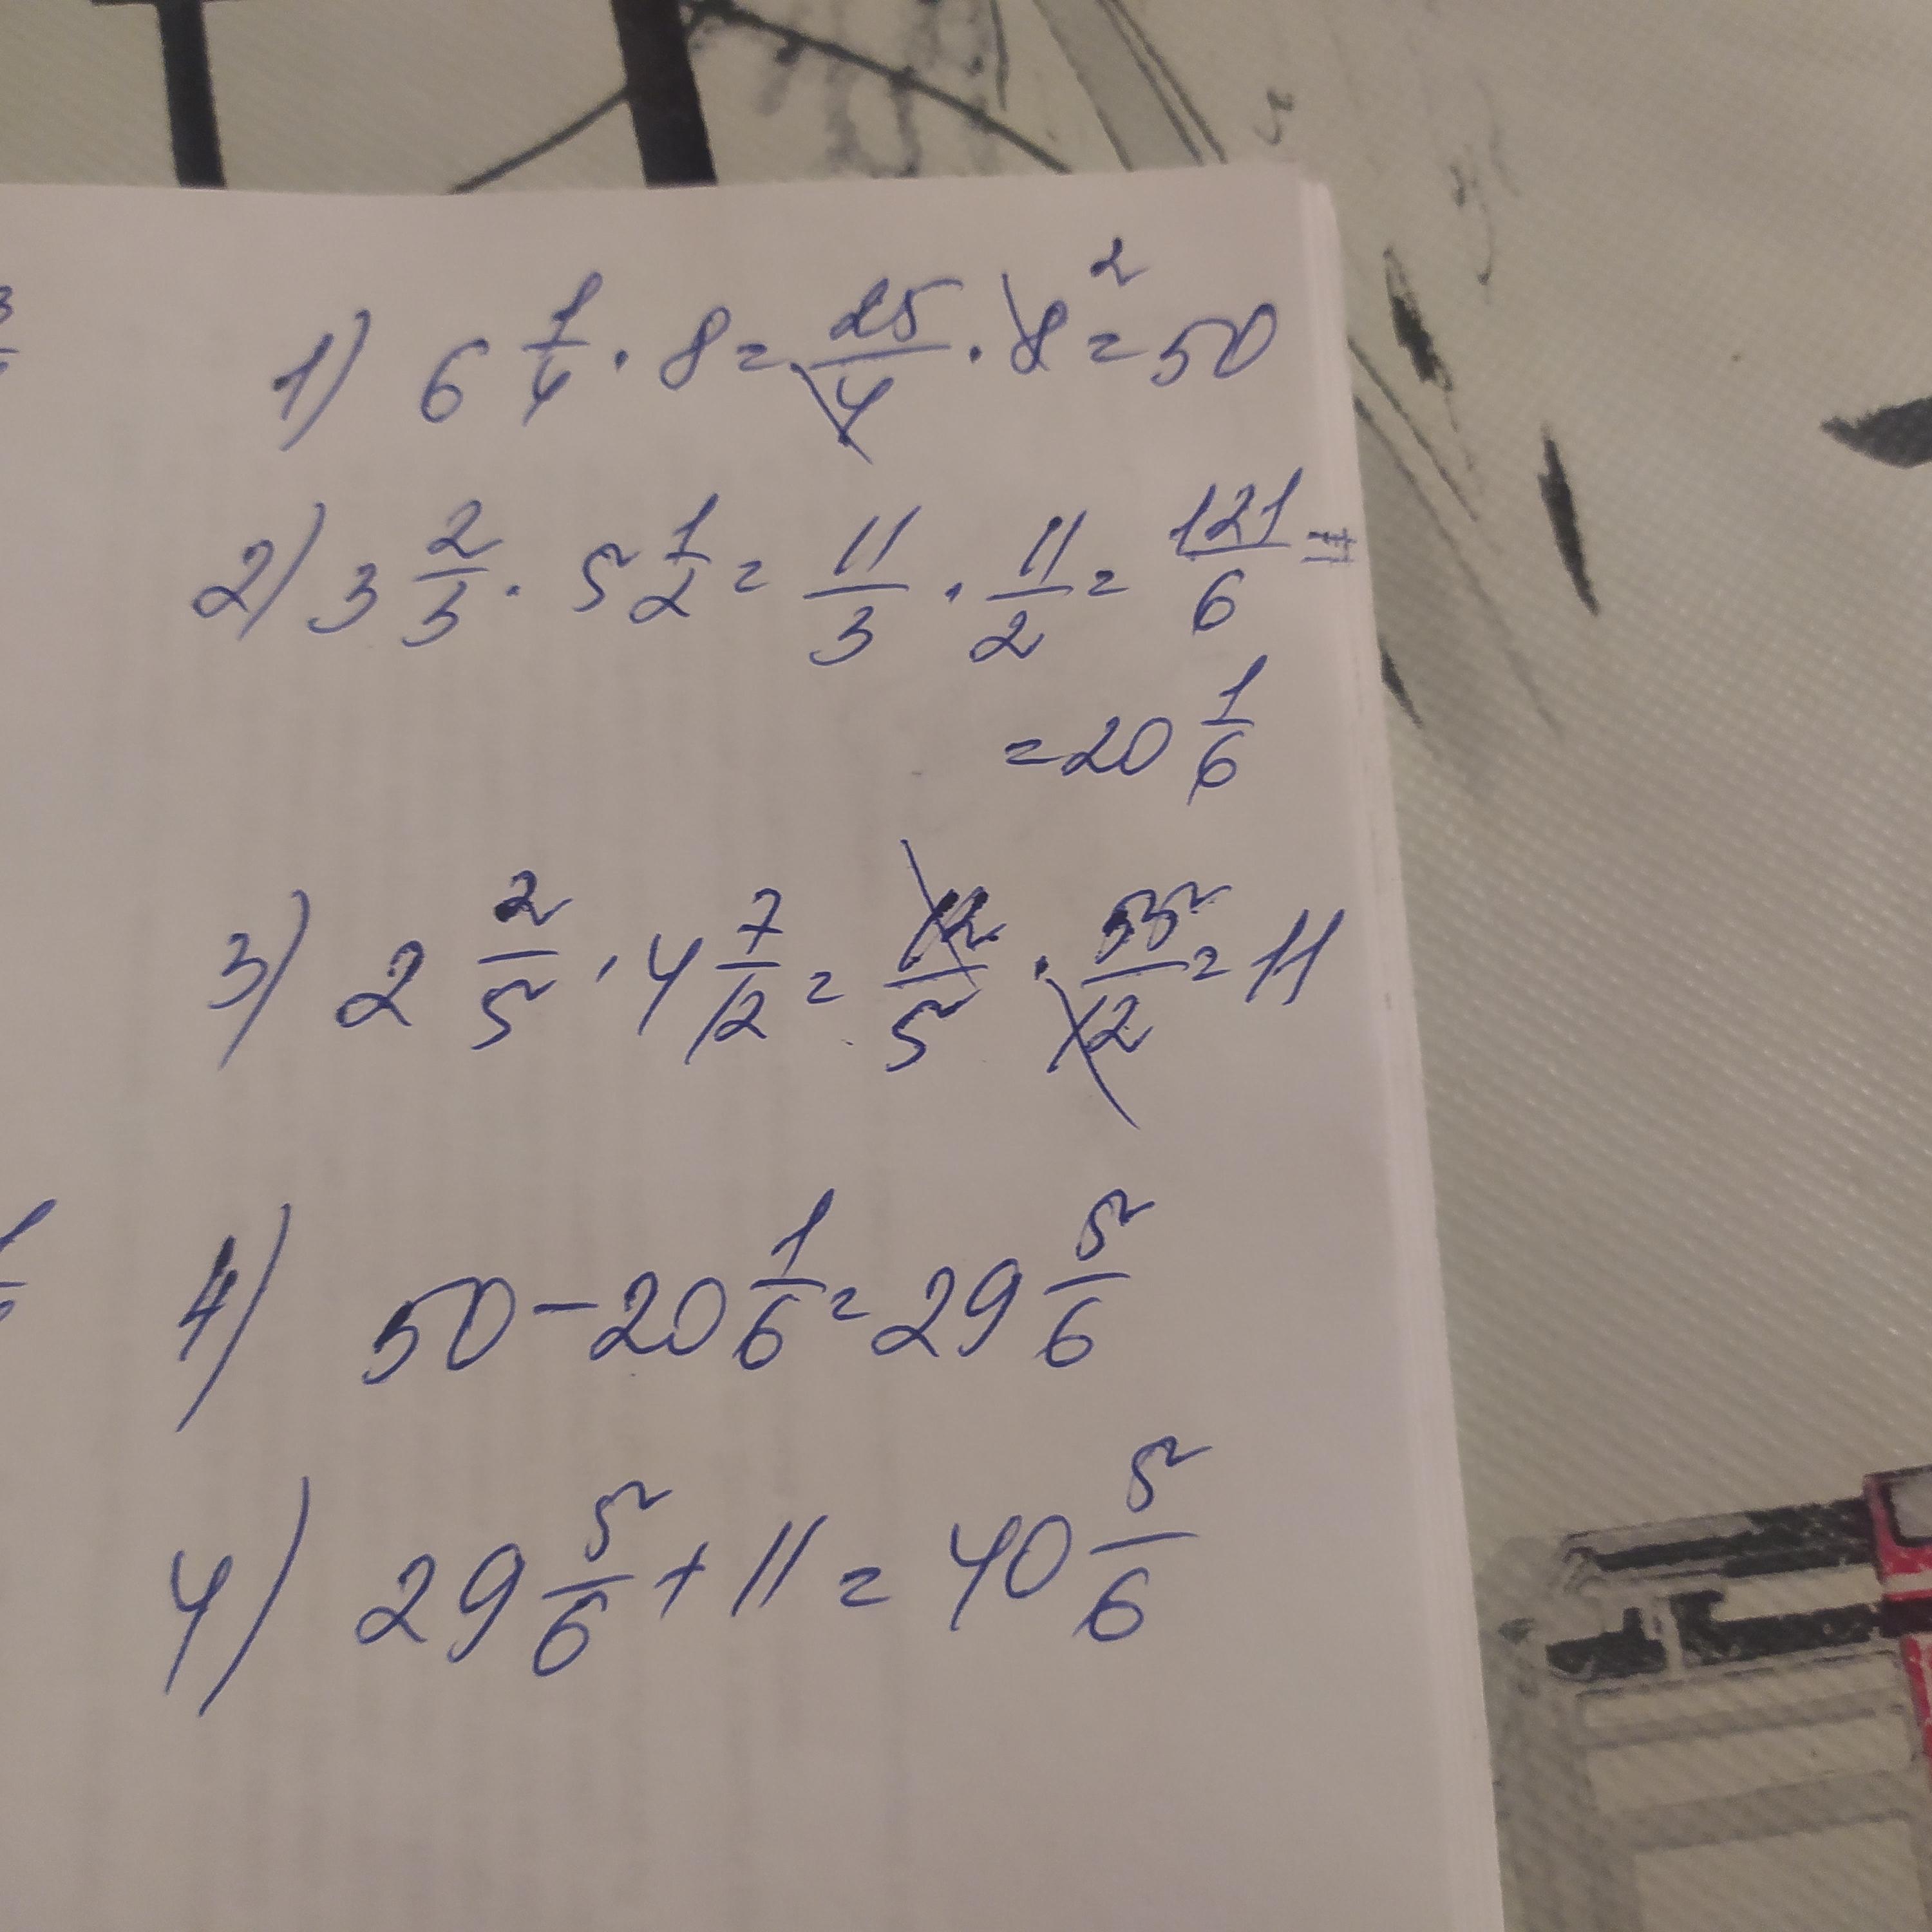 1) 6 1/4 · 8 = 25/4 · 8 ² = 50
2) 3 2/3 · 5 1/2 = 11/3 · 11/2 = 121/6 =
= 20 1/6
3) 2 2/5 · 4 7/12 = 12/5 · 55/12 = 11
4) 50 - 20 1/6 = 29 5/6
4) 29 5/6 + 11 = 40 5/6